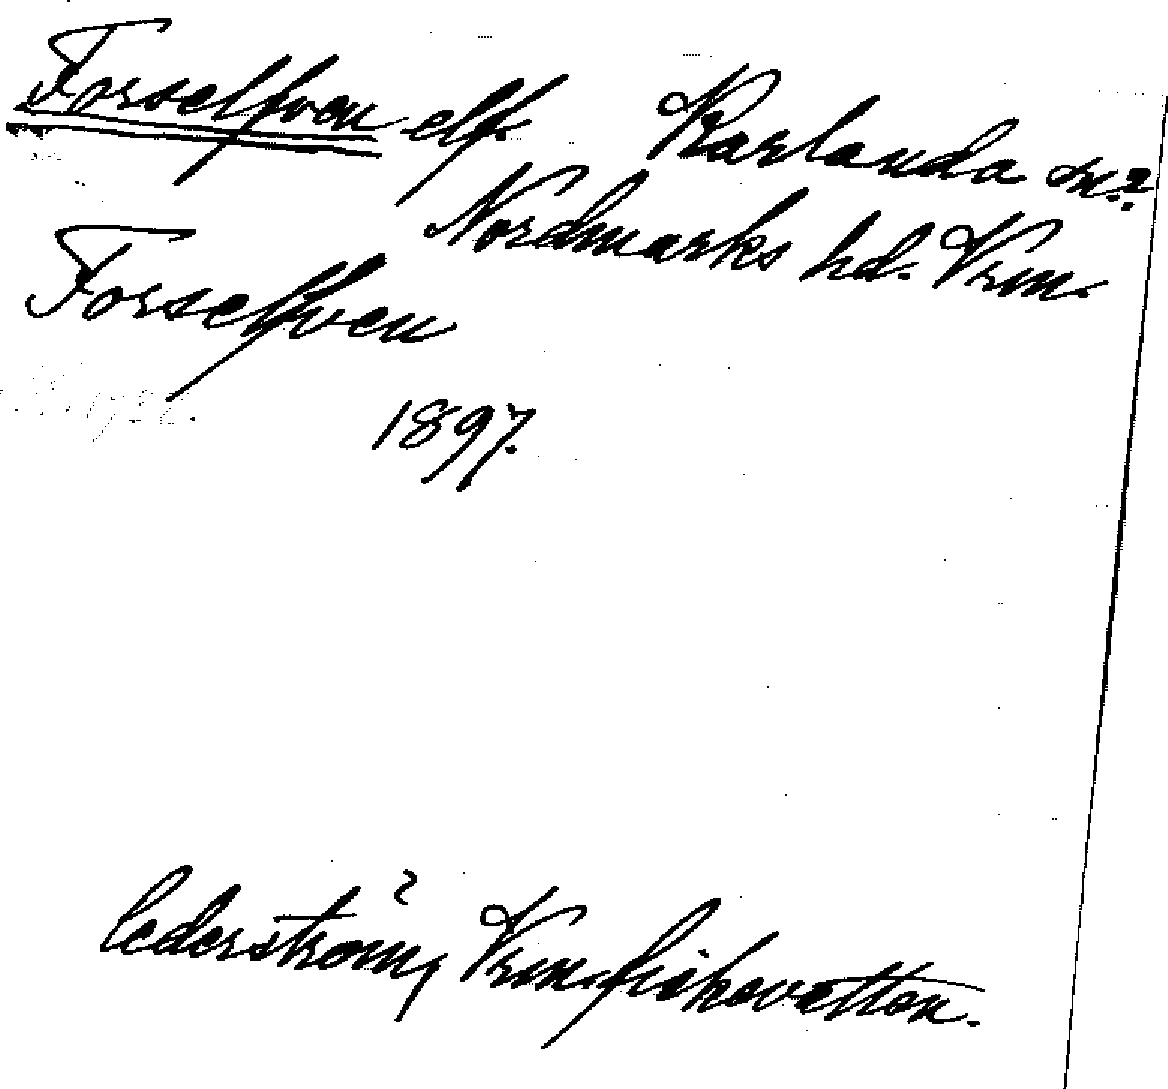 Forselfven elf. Karlanda sn?
Nordmarks hd. Vrm.
Forselfven
1897.
Cederström, Vrm. fiskevatten.